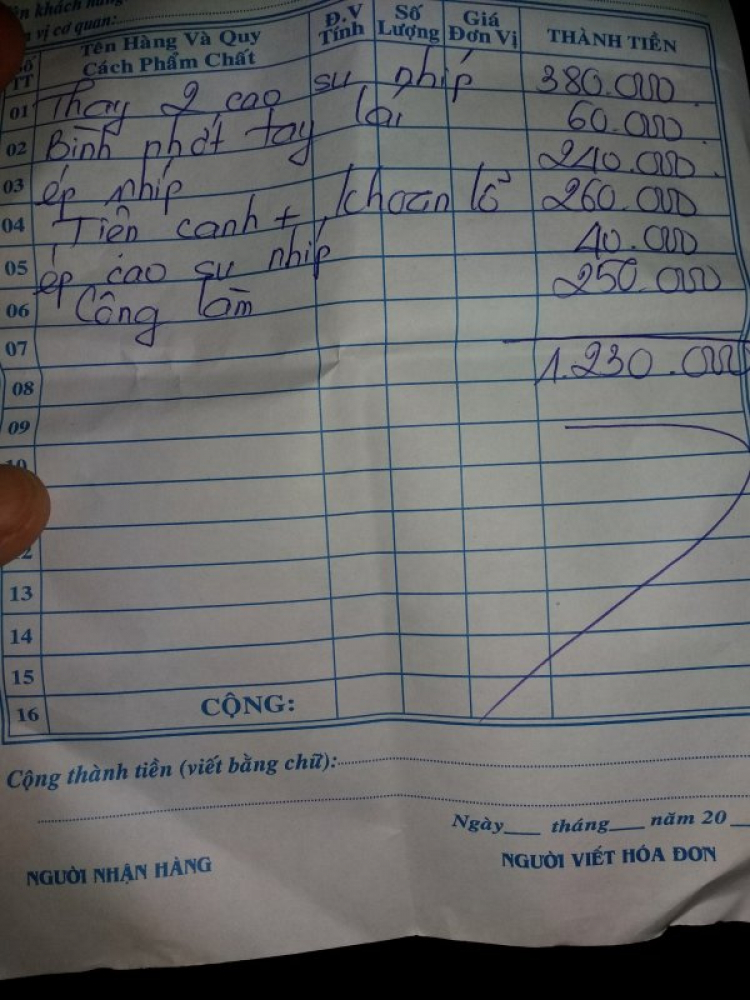 ên khách hàng
vị cơ quan:
Số TT Tên Hàng Và Quy Cách Phẩm Chất Đ.V Tính Số Lượng Giá Đơn Vị THÀNH TIỀN
01 Thay 2 cao su nhíp 380.000
02 Bình phớt tay lái 60.000
03 ép nhíp 240.000
04 Tiện canh + khoan lổ 260.000
05 ép cao su nhíp 40.000
06 Công làm 250.000
07
08 1.230.000
09
10
12
13
14
15
16 CỘNG:
Cộng thành tiền (viết bằng chữ):
Ngày tháng năm 20
NGƯỜI NHẬN HÀNG NGƯỜI VIẾT HÓA ĐƠN